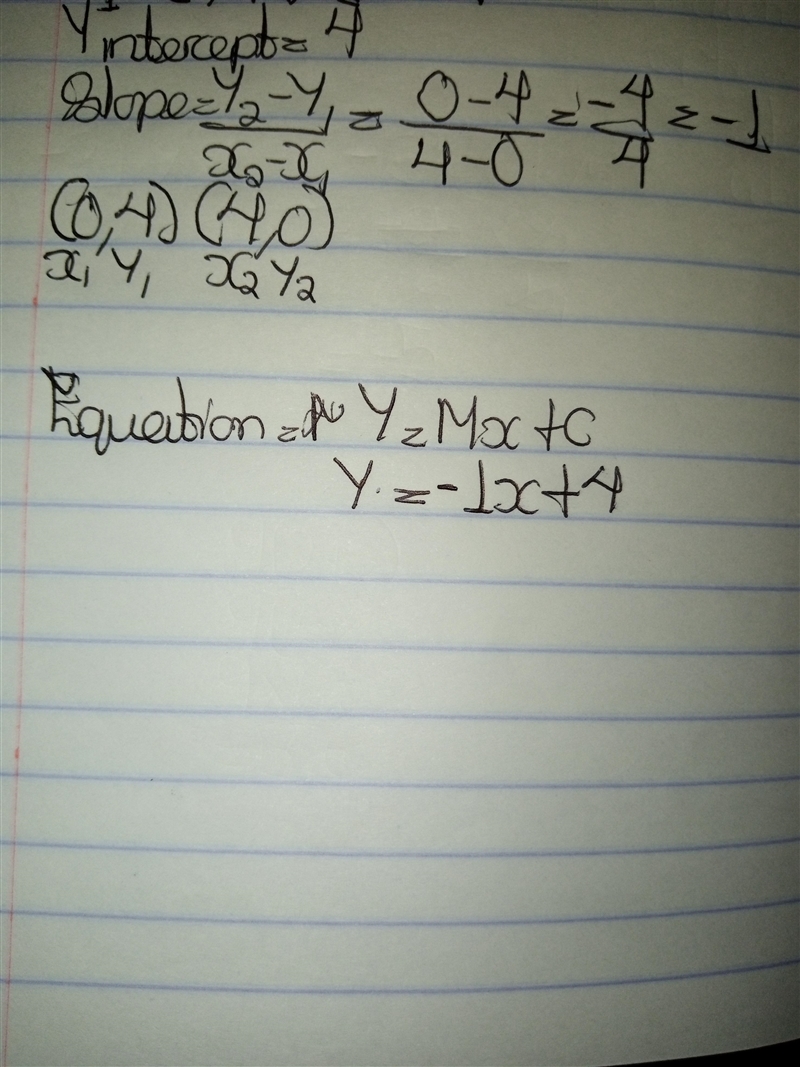 Y intercept = 4
Slope = Y₂ - Y₁ / x₂ - x₁ = 0 - 4 / 4 - 0 = -4 / 4 = -1
(0,4) (4,0)
x₁ Y₁ x₂ Y₂
Equation = Y = Mx + C
Y = -1x + 4